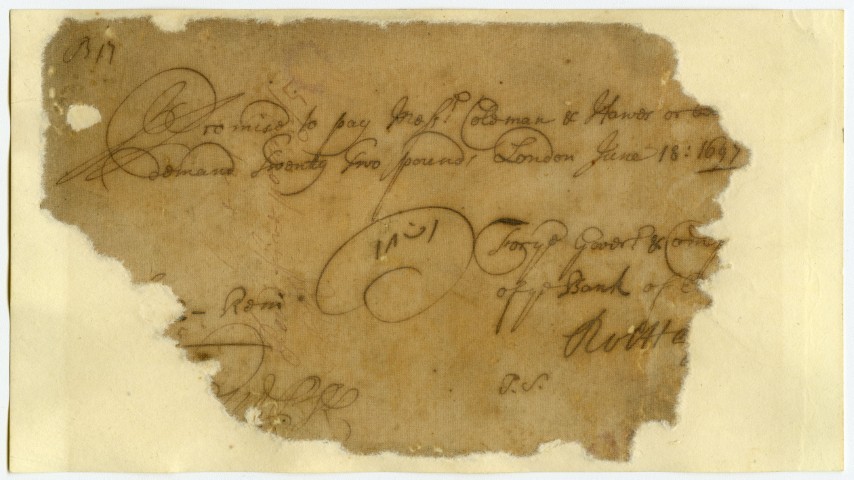 B 17
I Promise to pay Mess.rs Coldman & Hawes or on
demand Twenty Two pounds London June 18: 1697
For ye Govr. & Comp
of ye Bank of E
Rem
Rob Ha
P.S.